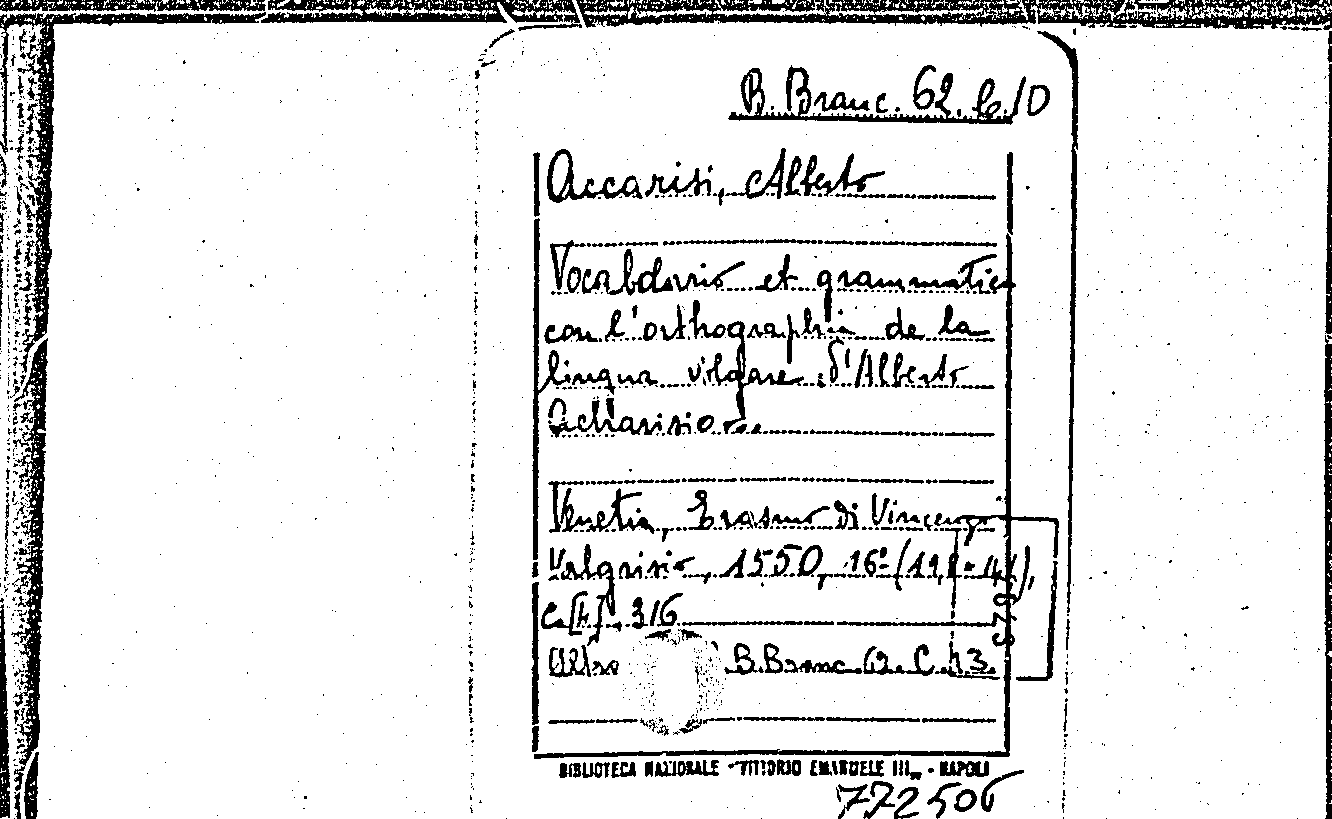 B. Branc. 62. b. 10
Accarisi, Alberto
Vocabolario et grammatica
con l'orthographia de la
lingua volgare d'Alberto
Acharisio...
Venetia, Erasmo di Vincenzo
Valgrisio, 1550, 16º
C. [4], 316
Altro B. Branc. 62. C. 13.
BIBLIOTECA NAZIONALE "VITTORIO EMANUELE III" - NAPOLI
772506